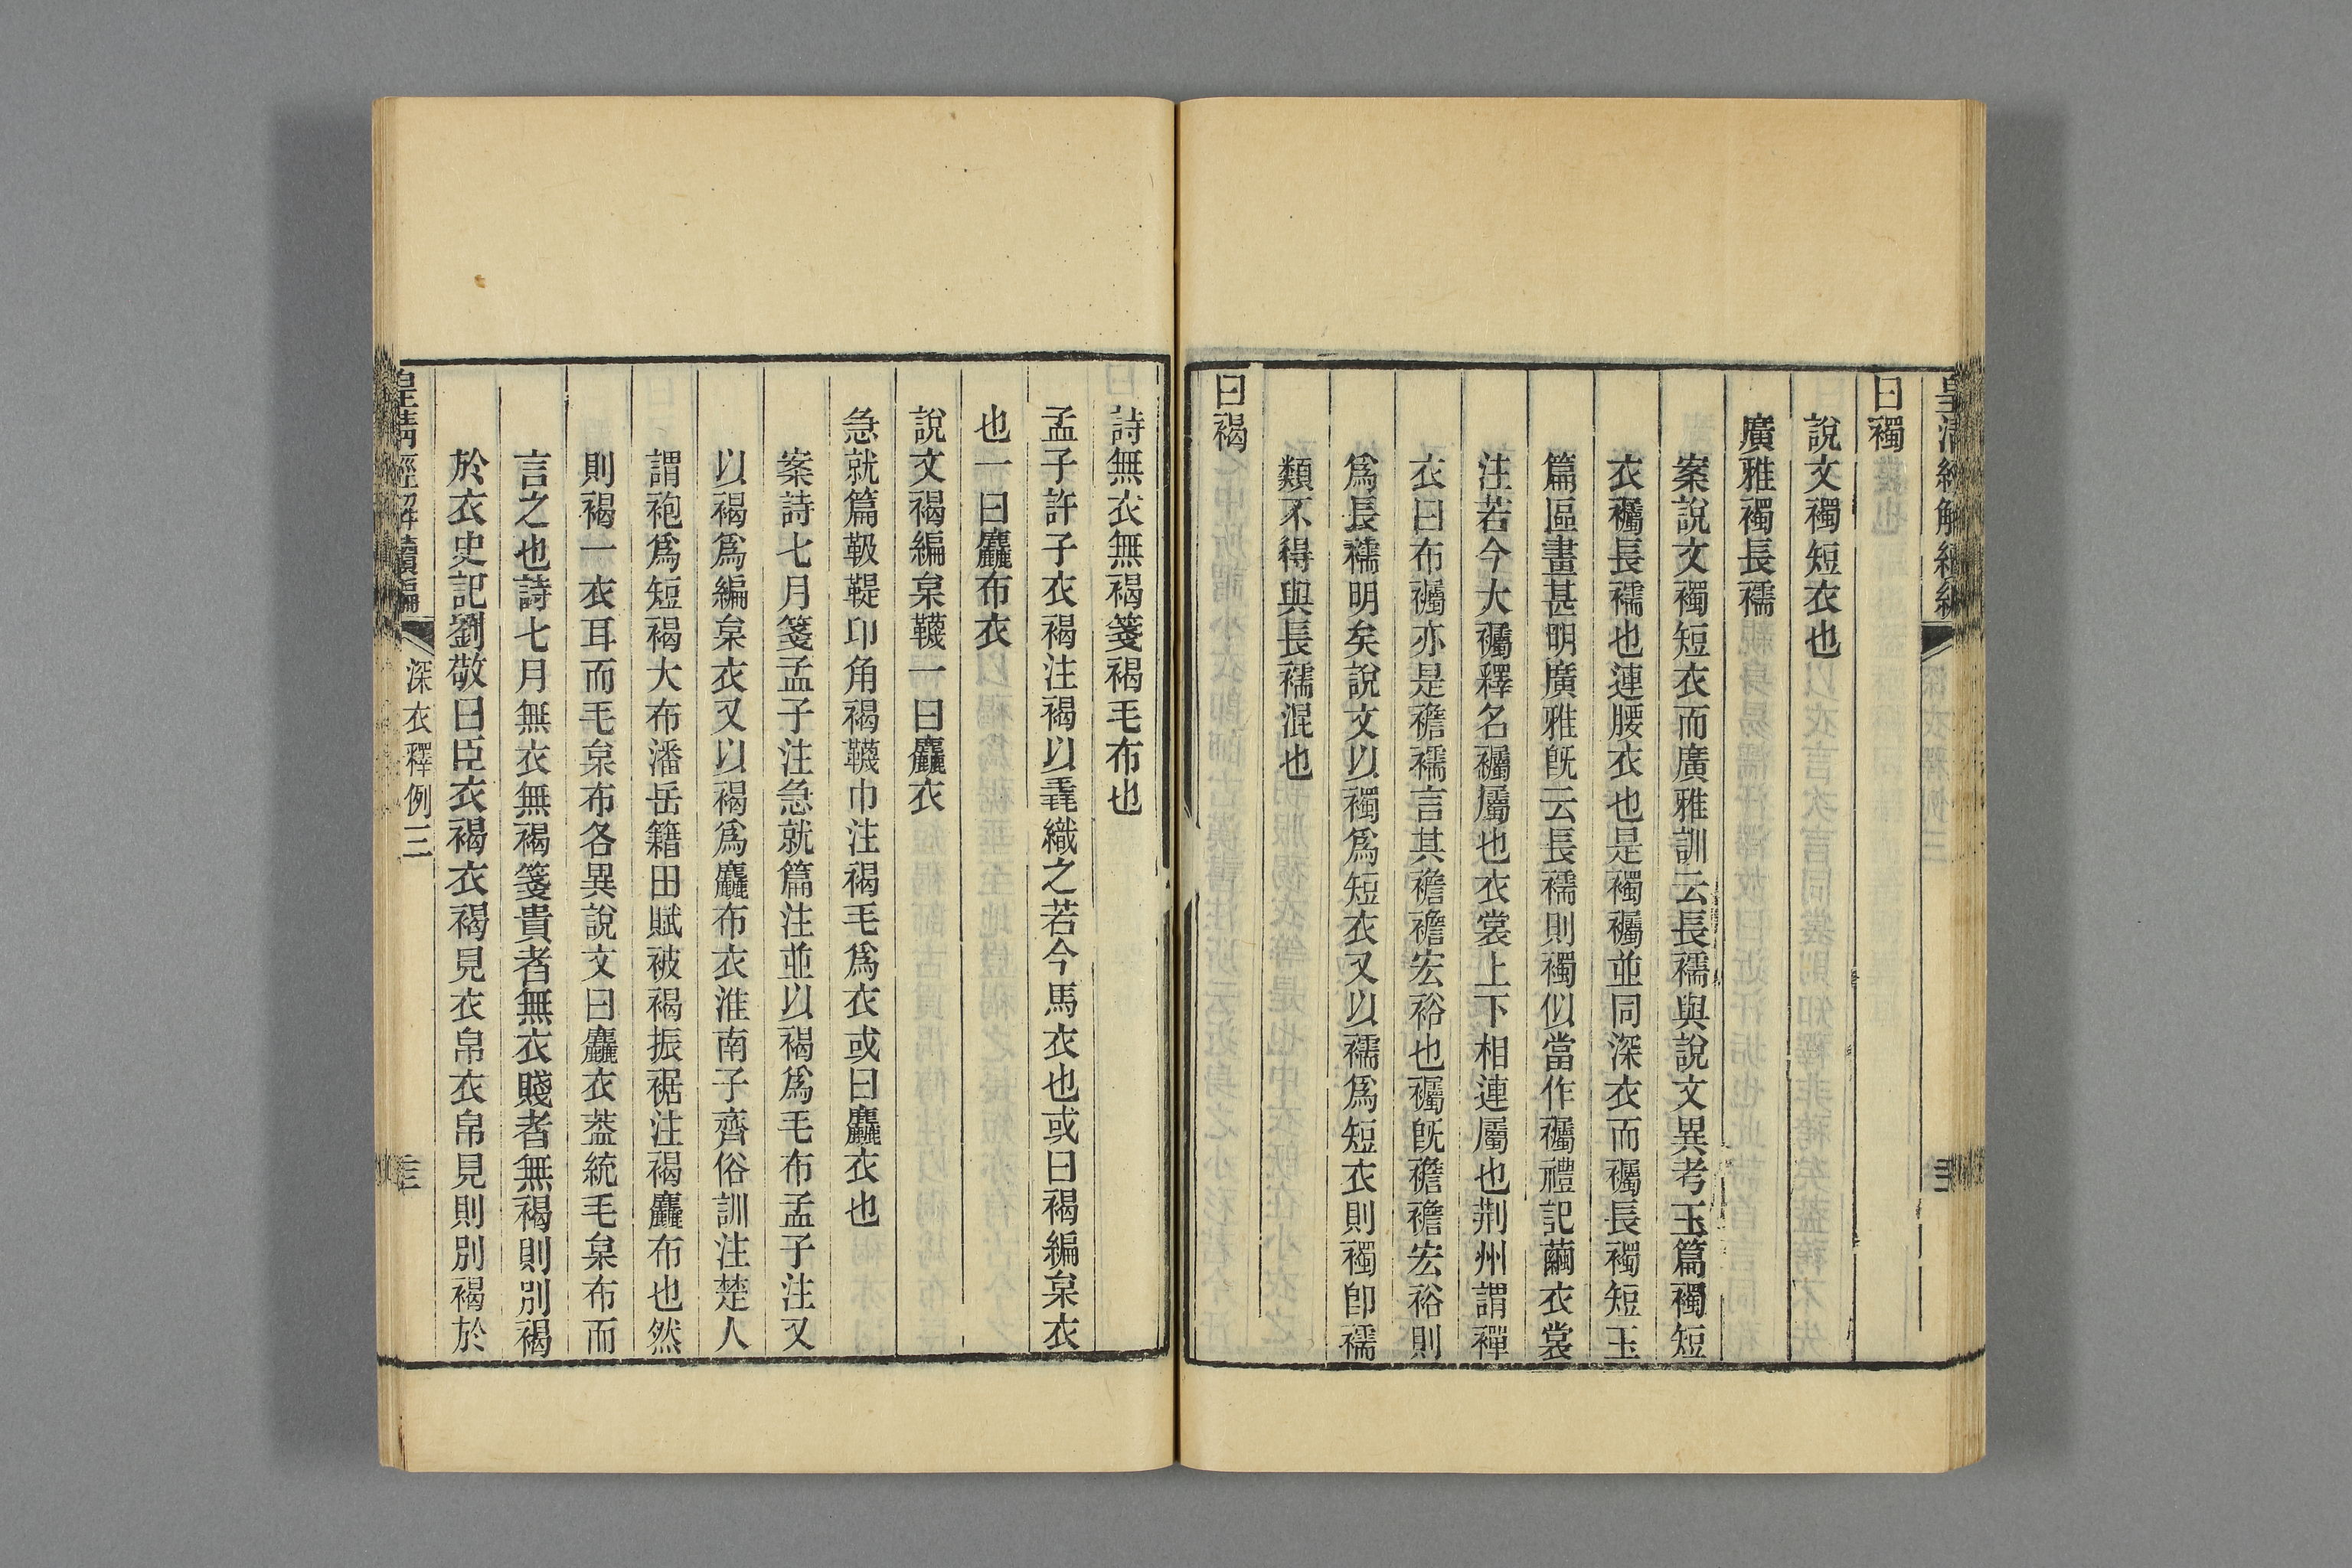 曰襡
說文襡短衣也
廣雅襡長襦
案說文襡短衣而廣雅訓云長襦與說文異考玉篇襡短
衣襹長襦也連腰衣也是襡襹並同深衣而襹長襡短玉
篇區畫甚明廣雅旣云長襦則襡似當作襹禮記繭衣裳
注若今大襹釋名襹屬也衣裳上下相連屬也荆州謂禪
衣曰布襹亦是襜襦言其襜襜宏裕也襹旣襜襜宏裕則
爲長襦明矣說文以襡爲短衣又以襦爲短衣則襡卽襦
類不得與長襦混也
曰褐
詩無衣無褐箋褐毛布也
孟子許子衣褐注褐以毳織之若今馬衣也或曰褐編枲衣
也一曰麤布衣
說文褐編枲韤一曰麤衣
急就篇靸鞮卬角褐韤巾注褐毛爲衣或曰麤衣也
案詩七月箋孟子注急就篇注並以褐爲毛布孟子注又
以褐爲編枲衣又以褐爲麤布衣淮南子齊俗訓注楚人
謂袍爲短褐大布潘岳籍田賦被褐振裾注褐麤布也然
則褐一衣耳而毛枲布各異說文曰麤衣葢統毛枲布而
言之也詩七月無衣無褐箋貴者無衣賤者無褐則別褐
於衣史記劉敬曰臣衣褐衣褐見衣帛衣帛見則別褐於
皇淸經解續編
深衣釋例三